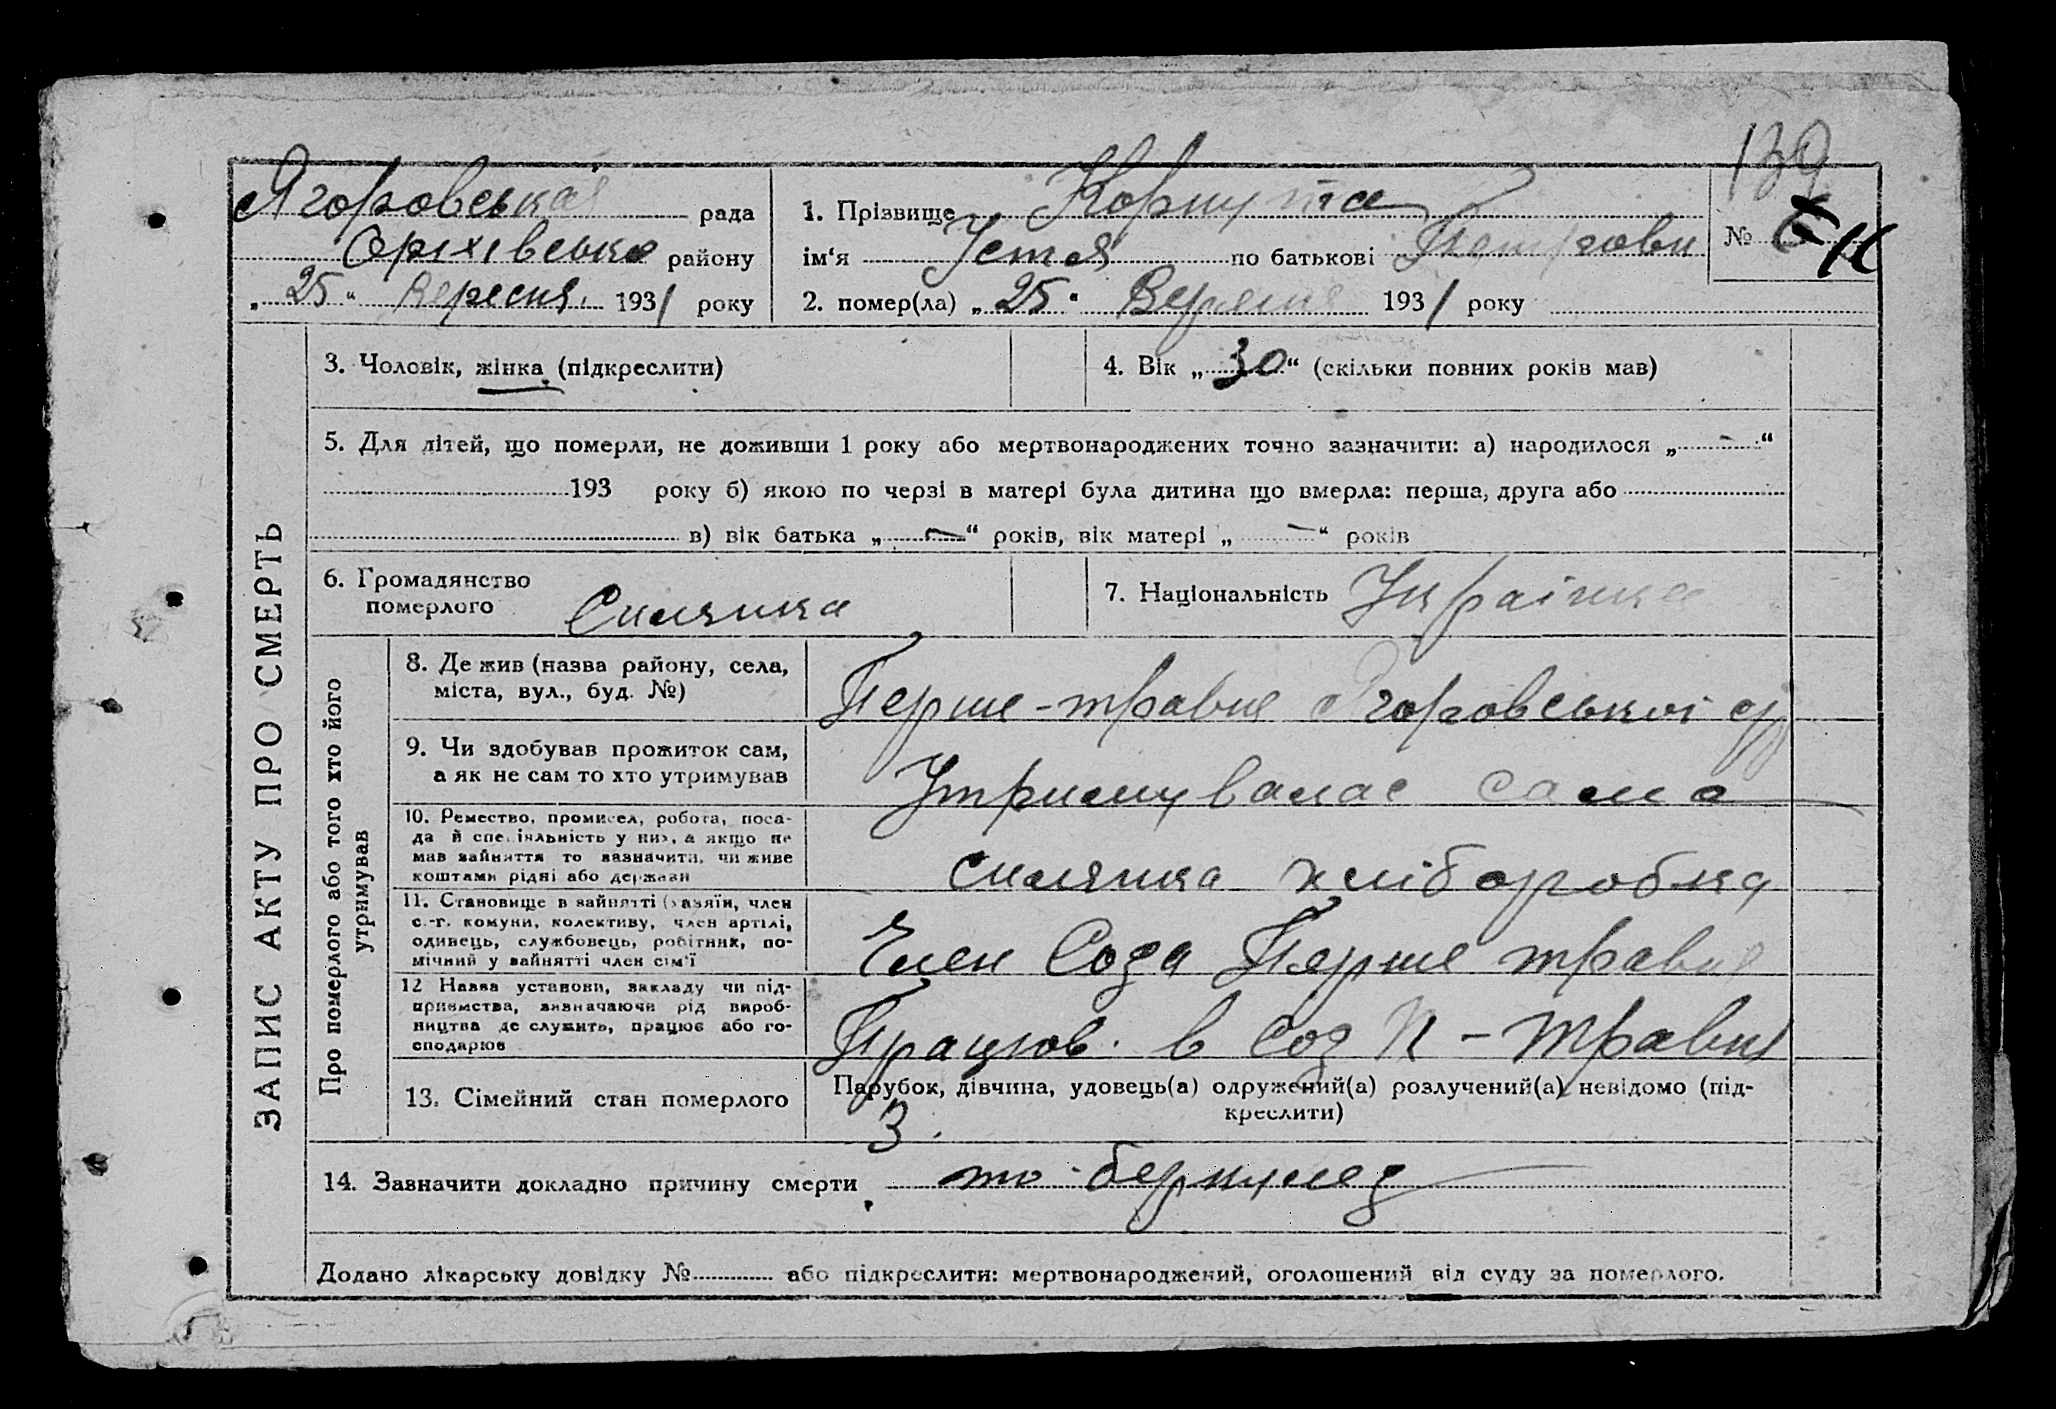 139
Ягоровська рада
Оріхівсько району
„ 25 “ Вересня. 1931 року
1. Прізвище Корнута
ім‘я Устя по батькові Петрови
№ 11
2. помер(ла) „ 25 “ Вересня 1931 року
ЗАПИС АКТУ ПРО СМЕРТЬ
3. Чоловік, жінка (підкреслити)
4. Вік „ 30 “ (скільки повних років мав)
5. Для дітей, що померли, не доживши 1 року або мертвонароджених точно зазначити: а) народилося „ – “
193 року б) якою по черзі в матері була дитина що вмерла: перша, друга або
в) вік батька „ – “ років, вік матері „ – “ років
6. Громадянство
померлого Силянка
7. Національність Українка
Про померлого або того хто його
утримував
8. Де жив (назва району, села,
міста, вул., буд. №)
Перше-травня Ягоровської ср
9. Чи здобував прожиток сам,
а як не сам то хто утримував
Утримувалас сама
10. Ремество, промисел, робота, поса-
да й спеціяльність у них, а якщо не
мав зайняття то зазначити, чи живе
коштами рідні або держави
силянка хліборобка
11. Становище в зайнятті (хазяїн, член
с.-г. комуни, колективу, член артілі,
одивець, службовець, робітник, по-
мічний у зайнятті член сім'ї
Член Соза Перше травня
12 Назва установи, закладу чи під-
приємства, визначаючи рід вироб-
ництва де служить, працює або го-
сподарює
Працюв. в Соз П-Травня
13. Сімейний стан померлого
Парубок, дівчина, удовець(а) одружений(а) розлучений(а) невідомо (під-
креслити)
З.
14. Зазначити докладно причину смерти
Додано лікарську довідку № або підкреслити: мертвонароджений, оголошений від суду за померлого.